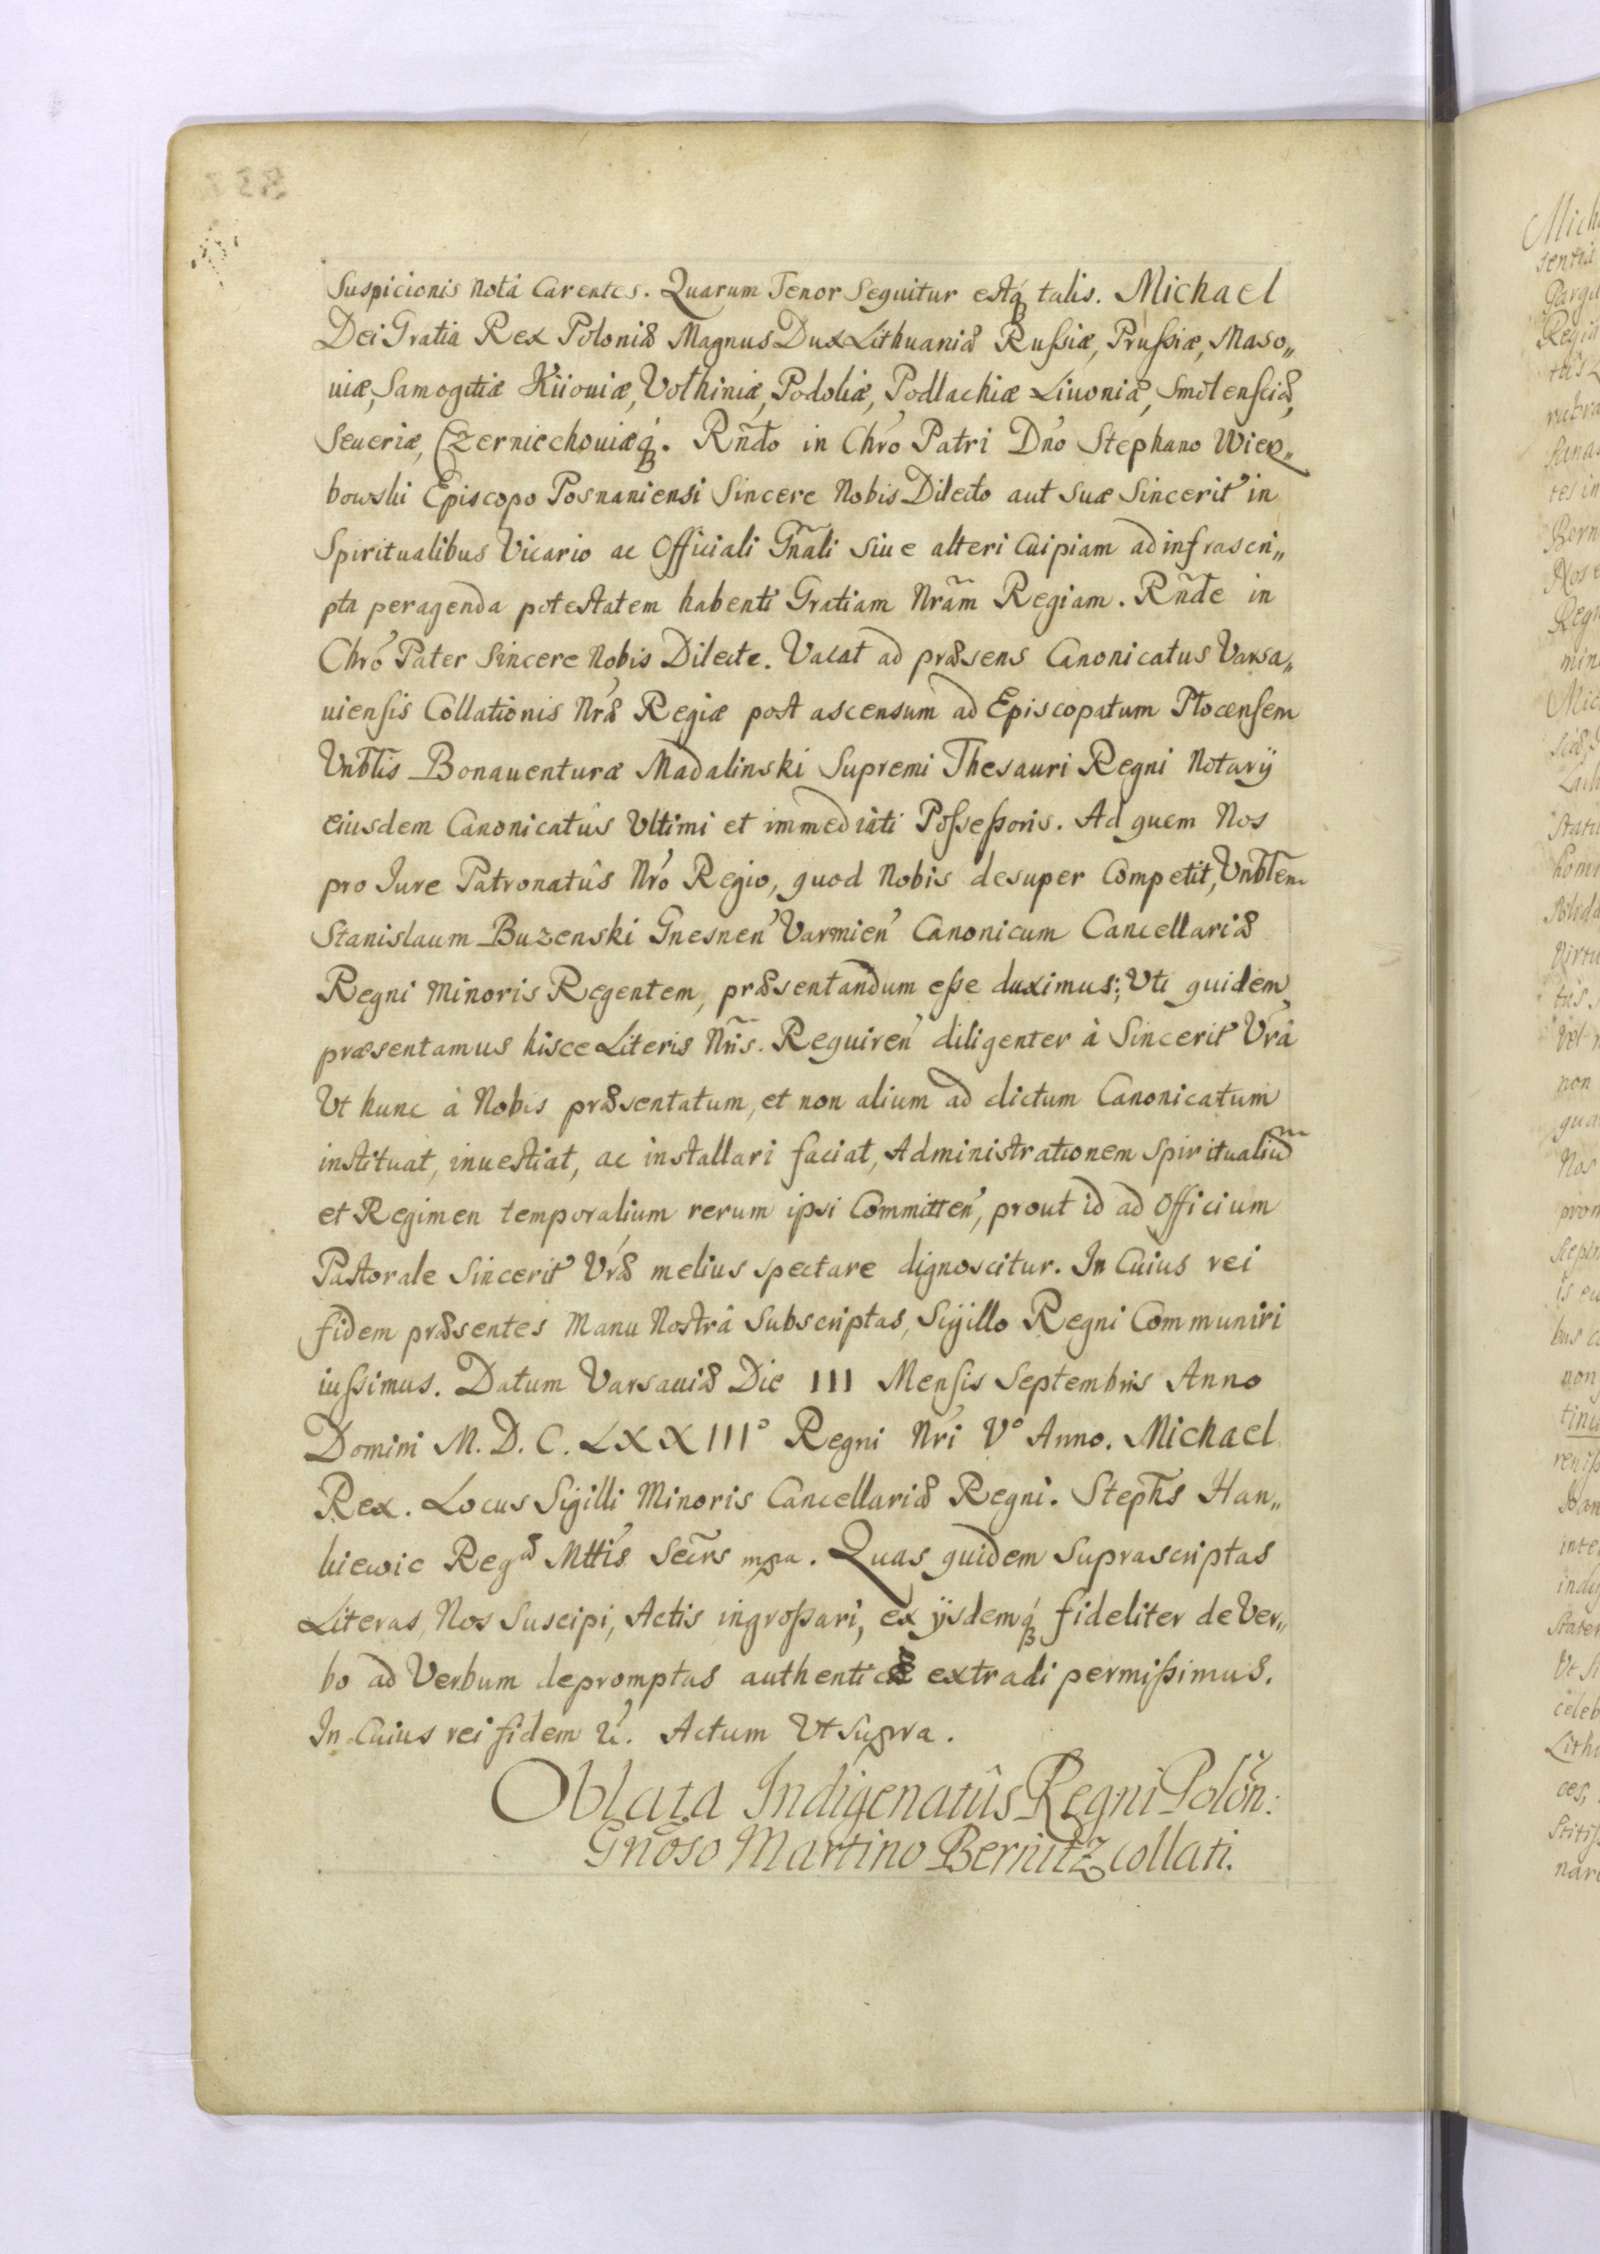 Suspicionis notâ Carentes. Quarum Tenor Sequitur estq́ talis. Michael
Dei Gratia Rex Poloniæ Magnus Dux Lithuaniæ Rußiæ, Prußiæ, Maso„
uiæ, Samogitiæ Kiiouiæ, Volhiniæ, Podoliæ, Podlachiæ Liuoniæ, Smolensciæ,
Seueriæ, Czerniechouiæq́. Rñdo in Chro Patri Dño Stephano Wierz„
bowski Episcopo Posnaniensi Sincere Nobis Dilecto aut Suæ Sincerit' in
Spiritualibus Vicario ac Officiali Gñali Siue alteri Cuipiam ad infrascri„
pta peragenda potestatem habenti Gratiam Nram̃ Regiam. Rñde in
Chro Pater Sincere Nobis Dilecte. Vacat ad præsens Canonicatus Varsa„
uiensis Collationis Nræ Regiæ post ascensum ad Episcopatum Plocensem
Vnblis Bonauenturæ Madalinski Supremi Thesauri Regni Notarÿ
eiusdem Canonicatûs Vltimi et immediati Poßeßoris. Ad quem Nos
pro Iure Patronatûs Nro Regio, quod Nobis desuper Competit, Vnblem
Stanislaum Buzenski Gnesnen' Varmien' Canonicum Cancellariæ
Regni Minoris Regentem, præsentandum eße duximus; Vti quidem
præsentamus hisce Literis Nris. Requiren' diligenter à Sincerit' Vrâ
Vt hunc à Nobis præsentatum, et non alium ad dictum Canonicatum
instituat, inuestiat, ac installari faciat, Administrationem Spiritualium
et Regimen temporalium rerum ipsi Committen', prout id ad Officium
Pastorale Sincerit' Vræ melius spectare dignoscitur. In Cuius rei
fidem præsentes Manu Nostrâ Subscriptas, Sigillo Regni Communiri
iußimus. Datum Varsauiæ Die III Mensis Septembris Anno
Domini M. D. C. LXXIII° Regni Nri V° Anno. Michael
Rex. Locus Sigilli Minoris Cancellariæ Regni. Stephs Han„
kiewic Regæ Mttis Secrs mpa. Quas quidem Suprascriptas
Literas, Nos Suscipi, Actis ingroßari, ex ÿsdemq́ fideliter de Ver„
bo ad Verbum depromptas authenticæ extradi permißimus.
In Cuius rei fidem &. Actum Vt Supra.
Oblata Indigenatûs Regni Poloñ:
Gnoso Martino Bernitz collati.